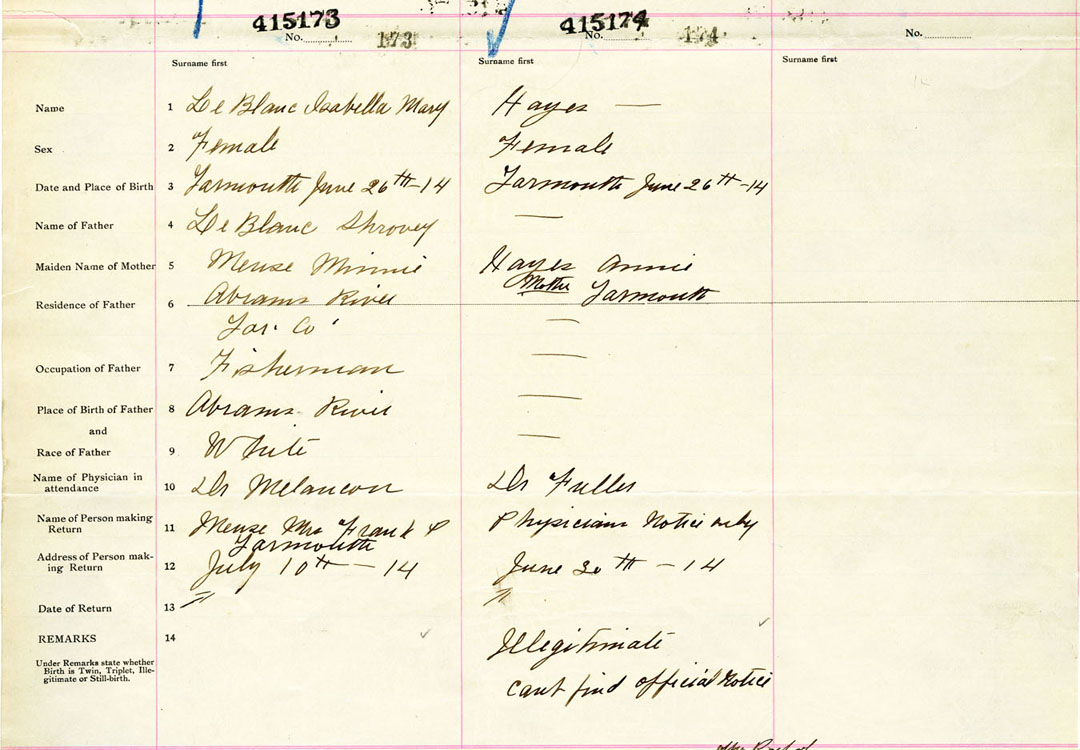 415173
No. 173
415174
No. 174
No.
Surname first
Surname first
Surname first
Name 1 Le Blanc Isabella Mary Hayes —
Sex 2 Female Female
Date and Place of Birth 3 Yarmouth June 26th-14 Yarmouth June 26th-14
Name of Father 4 Le Blanc Shrovey —
Maiden Name of Mother 5 Meuse Minnie Hayes Annie
Mother Yarmouth
Residence of Father 6 Abrams River
Yar. Co —
Occupation of Father 7 Fisherman —
Place of Birth of Father 8 Abrams River —
and
Race of Father 9 White —
Name of Physician in
attendance 10 Dr Melancon Dr Fuller
Name of Person making
Return 11 Meuse Mrs Frank P Physicians Notice only
Yarmouth
Address of Person mak-
ing Return 12 July 10th — 14 June 30th — 14
Date of Return 13 〃 〃
REMARKS 14 Illegitimate
Under Remarks state whether
Birth is Twin, Triplet, Ille-
gitimate or Still-birth.
cant find official Notice